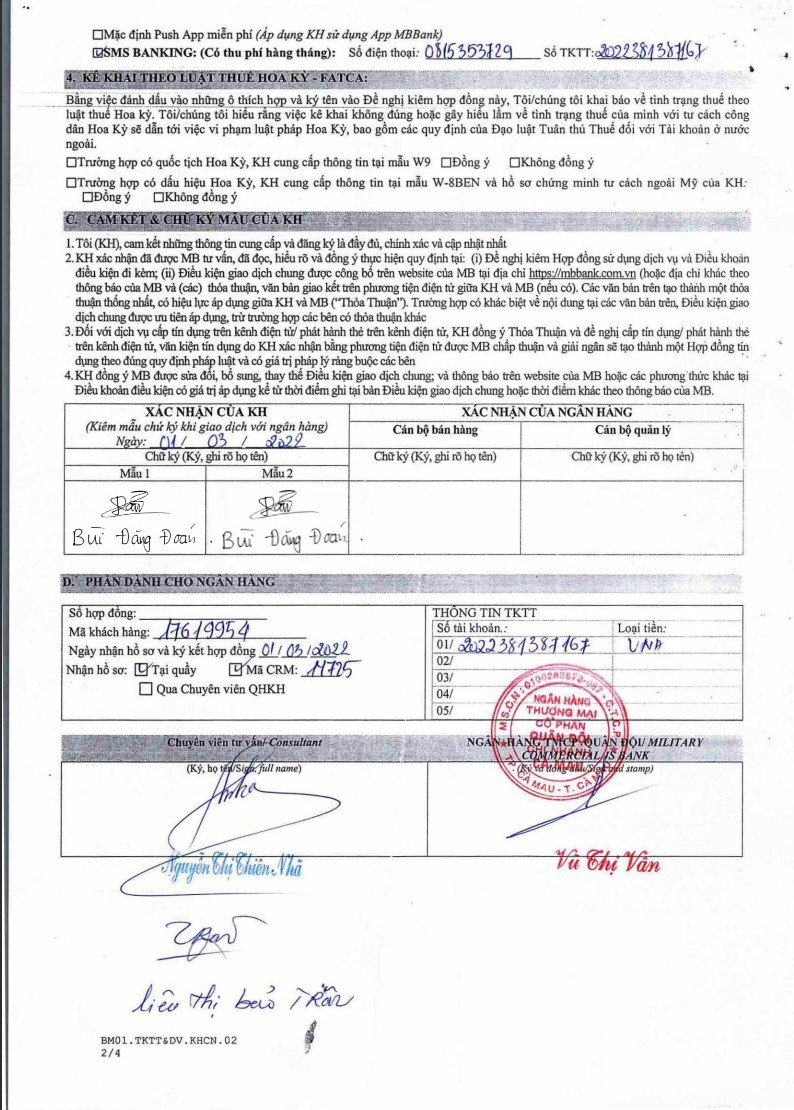 ☐Mặc định Push App miễn phí (Áp dụng KH sử dụng App MBBank)
☑SMS BANKING: (Có thu phí hàng tháng): Số điện thoại: 0815353729 Số TKTT: 2022381387167
4. KÊ KHAI THEO LUẬT THUẾ HOA KỲ - FATCA:
Bằng việc đánh dấu vào những ô thích hợp và ký tên vào Đề nghị kiêm hợp đồng này, Tôi/chúng tôi khai báo về tình trạng thuế theo
luật thuế Hoa kỳ. Tôi/chúng tôi hiểu rằng việc kê khai không đúng hoặc gây hiểu lầm về tình trạng thuế của mình với tư cách công
dân Hoa Kỳ sẽ dẫn tới việc vi phạm luật pháp Hoa Kỳ, bao gồm các quy định của Đạo luật Tuân thủ Thuế đối với Tài khoản ở nước
ngoài.
☐Trường hợp có quốc tịch Hoa Kỳ, KH cung cấp thông tin tại mẫu W9 ☐Đồng ý ☐Không đồng ý
☐Trường hợp có dấu hiệu Hoa Kỳ, KH cung cấp thông tin tại mẫu W-8BEN và hồ sơ chứng minh tư cách ngoài Mỹ của KH:
☐Đồng ý ☐Không đồng ý
C. CAM KẾT & CHỮ KÝ MẪU CỦA KH
1. Tôi (KH), cam kết những thông tin cung cấp và đăng ký là đầy đủ, chính xác và cập nhật nhất
2. KH xác nhận đã được MB tư vấn, đã đọc, hiểu rõ và đồng ý thực hiện quy định tại: (i) Đề nghị kiêm Hợp đồng sử dụng dịch vụ và Điều khoản
điều kiện đi kèm; (ii) Điều kiện giao dịch chung được công bố trên website của MB tại địa chỉ https://mbbank.com.vn (hoặc địa chỉ khác theo
thông báo của MB và (các) thỏa thuận, văn bản giao kết trên phương tiện điện tử giữa KH và MB (nếu có). Các văn bản trên tạo thành một thỏa
thuận thống nhất, có hiệu lực áp dụng giữa KH và MB ("Thỏa Thuận"). Trường hợp có khác biệt về nội dung tại các văn bản trên, Điều kiện giao
dịch chung được ưu tiên áp dụng, trừ trường hợp các bên có thỏa thuận khác
3. Đối với dịch vụ cấp tín dụng trên kênh điện tử/ phát hành thẻ trên kênh điện tử, KH đồng ý Thỏa Thuận và đề nghị cấp tín dụng/ phát hành thẻ
trên kênh điện tử, văn kiện tín dụng do KH xác nhận bằng phương tiện điện tử được MB chấp thuận và giải ngân sẽ tạo thành một Hợp đồng tín
dụng theo đúng quy định pháp luật và có giá trị pháp lý ràng buộc các bên
4. KH đồng ý MB được sửa đổi, bổ sung, thay thế Điều kiện giao dịch chung; và thông báo trên website của MB hoặc các phương thức khác tại
Điều khoản điều kiện có giá trị áp dụng kể từ thời điểm ghi tại bản Điều kiện giao dịch chung hoặc thời điểm khác theo thông báo của MB.
XÁC NHẬN CỦA KH XÁC NHẬN CỦA NGÂN HÀNG
(Kiêm mẫu chữ ký khi giao dịch với ngân hàng) Cán bộ bán hàng Cán bộ quản lý
Ngày: 01 / 03 / 2022
Chữ ký (Ký, ghi rõ họ tên) Chữ ký (Ký, ghi rõ họ tên) Chữ ký (Ký, ghi rõ họ tên)
Mẫu 1 Mẫu 2
Bùi Đăng Đoán Bùi Đăng Đoán
D. PHẦN DÀNH CHO NGÂN HÀNG
Số hợp đồng:
Mã khách hàng: 17619954
Ngày nhận hồ sơ và ký kết hợp đồng 01/03/2022
Nhận hồ sơ: ☑Tại quầy ☑Mã CRM: 11725
☐ Qua Chuyên viên QHKH
THÔNG TIN TKTT
Số tài khoản.: Loại tiền:
01/ 2022381387167 VND
02/
03/
04/
05/
NGÂN HÀNG
THƯƠNG MẠI
CỔ PHẦN
QUÂN ĐỘI
CHI NHÁNH
CÀ MAU
TP. CÀ MAU - T. CÀ MAU
Chuyên viên tư vấn/ Consultant
(Ký, họ tên/Sign, full name)
Nguyễn Thị Thiên Nhã
NGÂN HÀNG TMCP QUÂN ĐỘI/ MILITARY
COMMERCIAL JS BANK
(Ký và đóng dấu/Sign and stamp)
Vũ Thị Vân
Liêu Thị Bảo Trân
BM01.TKTT&DV.KHCN.02
2/4